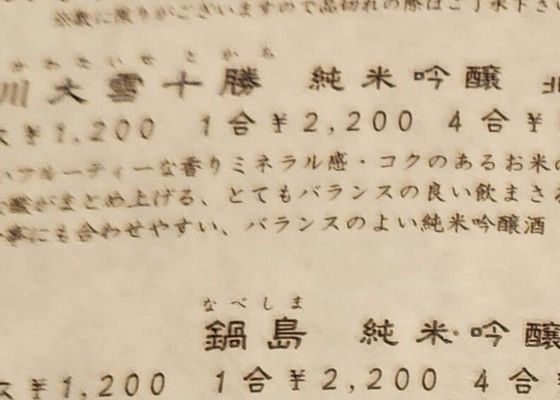 数に限りがございますので品切れの際はご了承下さい
かみかわたいせつ とかち
川大雪十勝 純米吟醸 北
ス¥1,200 1合¥2,200 4合¥
いフルーティーな香りミネラル感・コクのあるお米の
酸がまとめ上げる、とてもバランスの良い飲まさる
事にも合わせやすい、バランスのよい純米吟醸酒
なべしま
鍋島 純米吟醸
ス¥1,200 1合¥2,200 4合¥